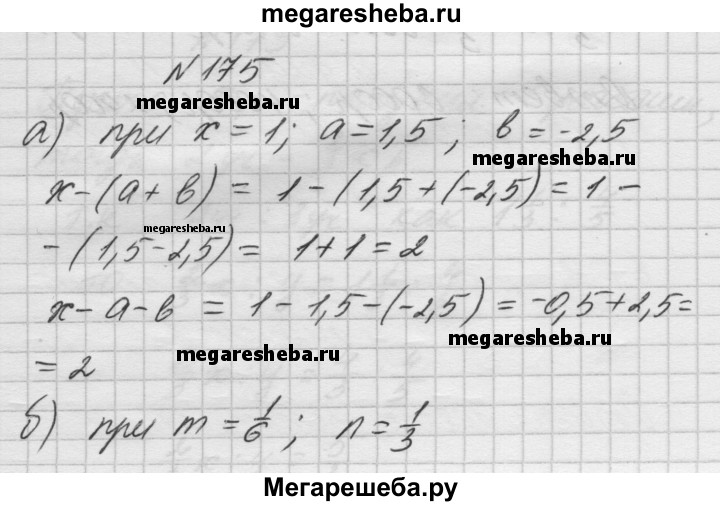 megaresheba.ru
N 175
megaresheba.ru
а) при x = 1; a = 1,5; в = -2,5
megaresheba.ru
x-(a+в) = 1-(1,5+(-2,5) = 1 -
megaresheba.ru
-(1,5-2,5) = 1+1=2
x-a-в = 1-1,5-(-2,5) = -0,5+2,5=
megaresheba.ru
megaresheba.ru
= 2
б) при m = 1/6; n = 1/3
Мегарешеба.ру